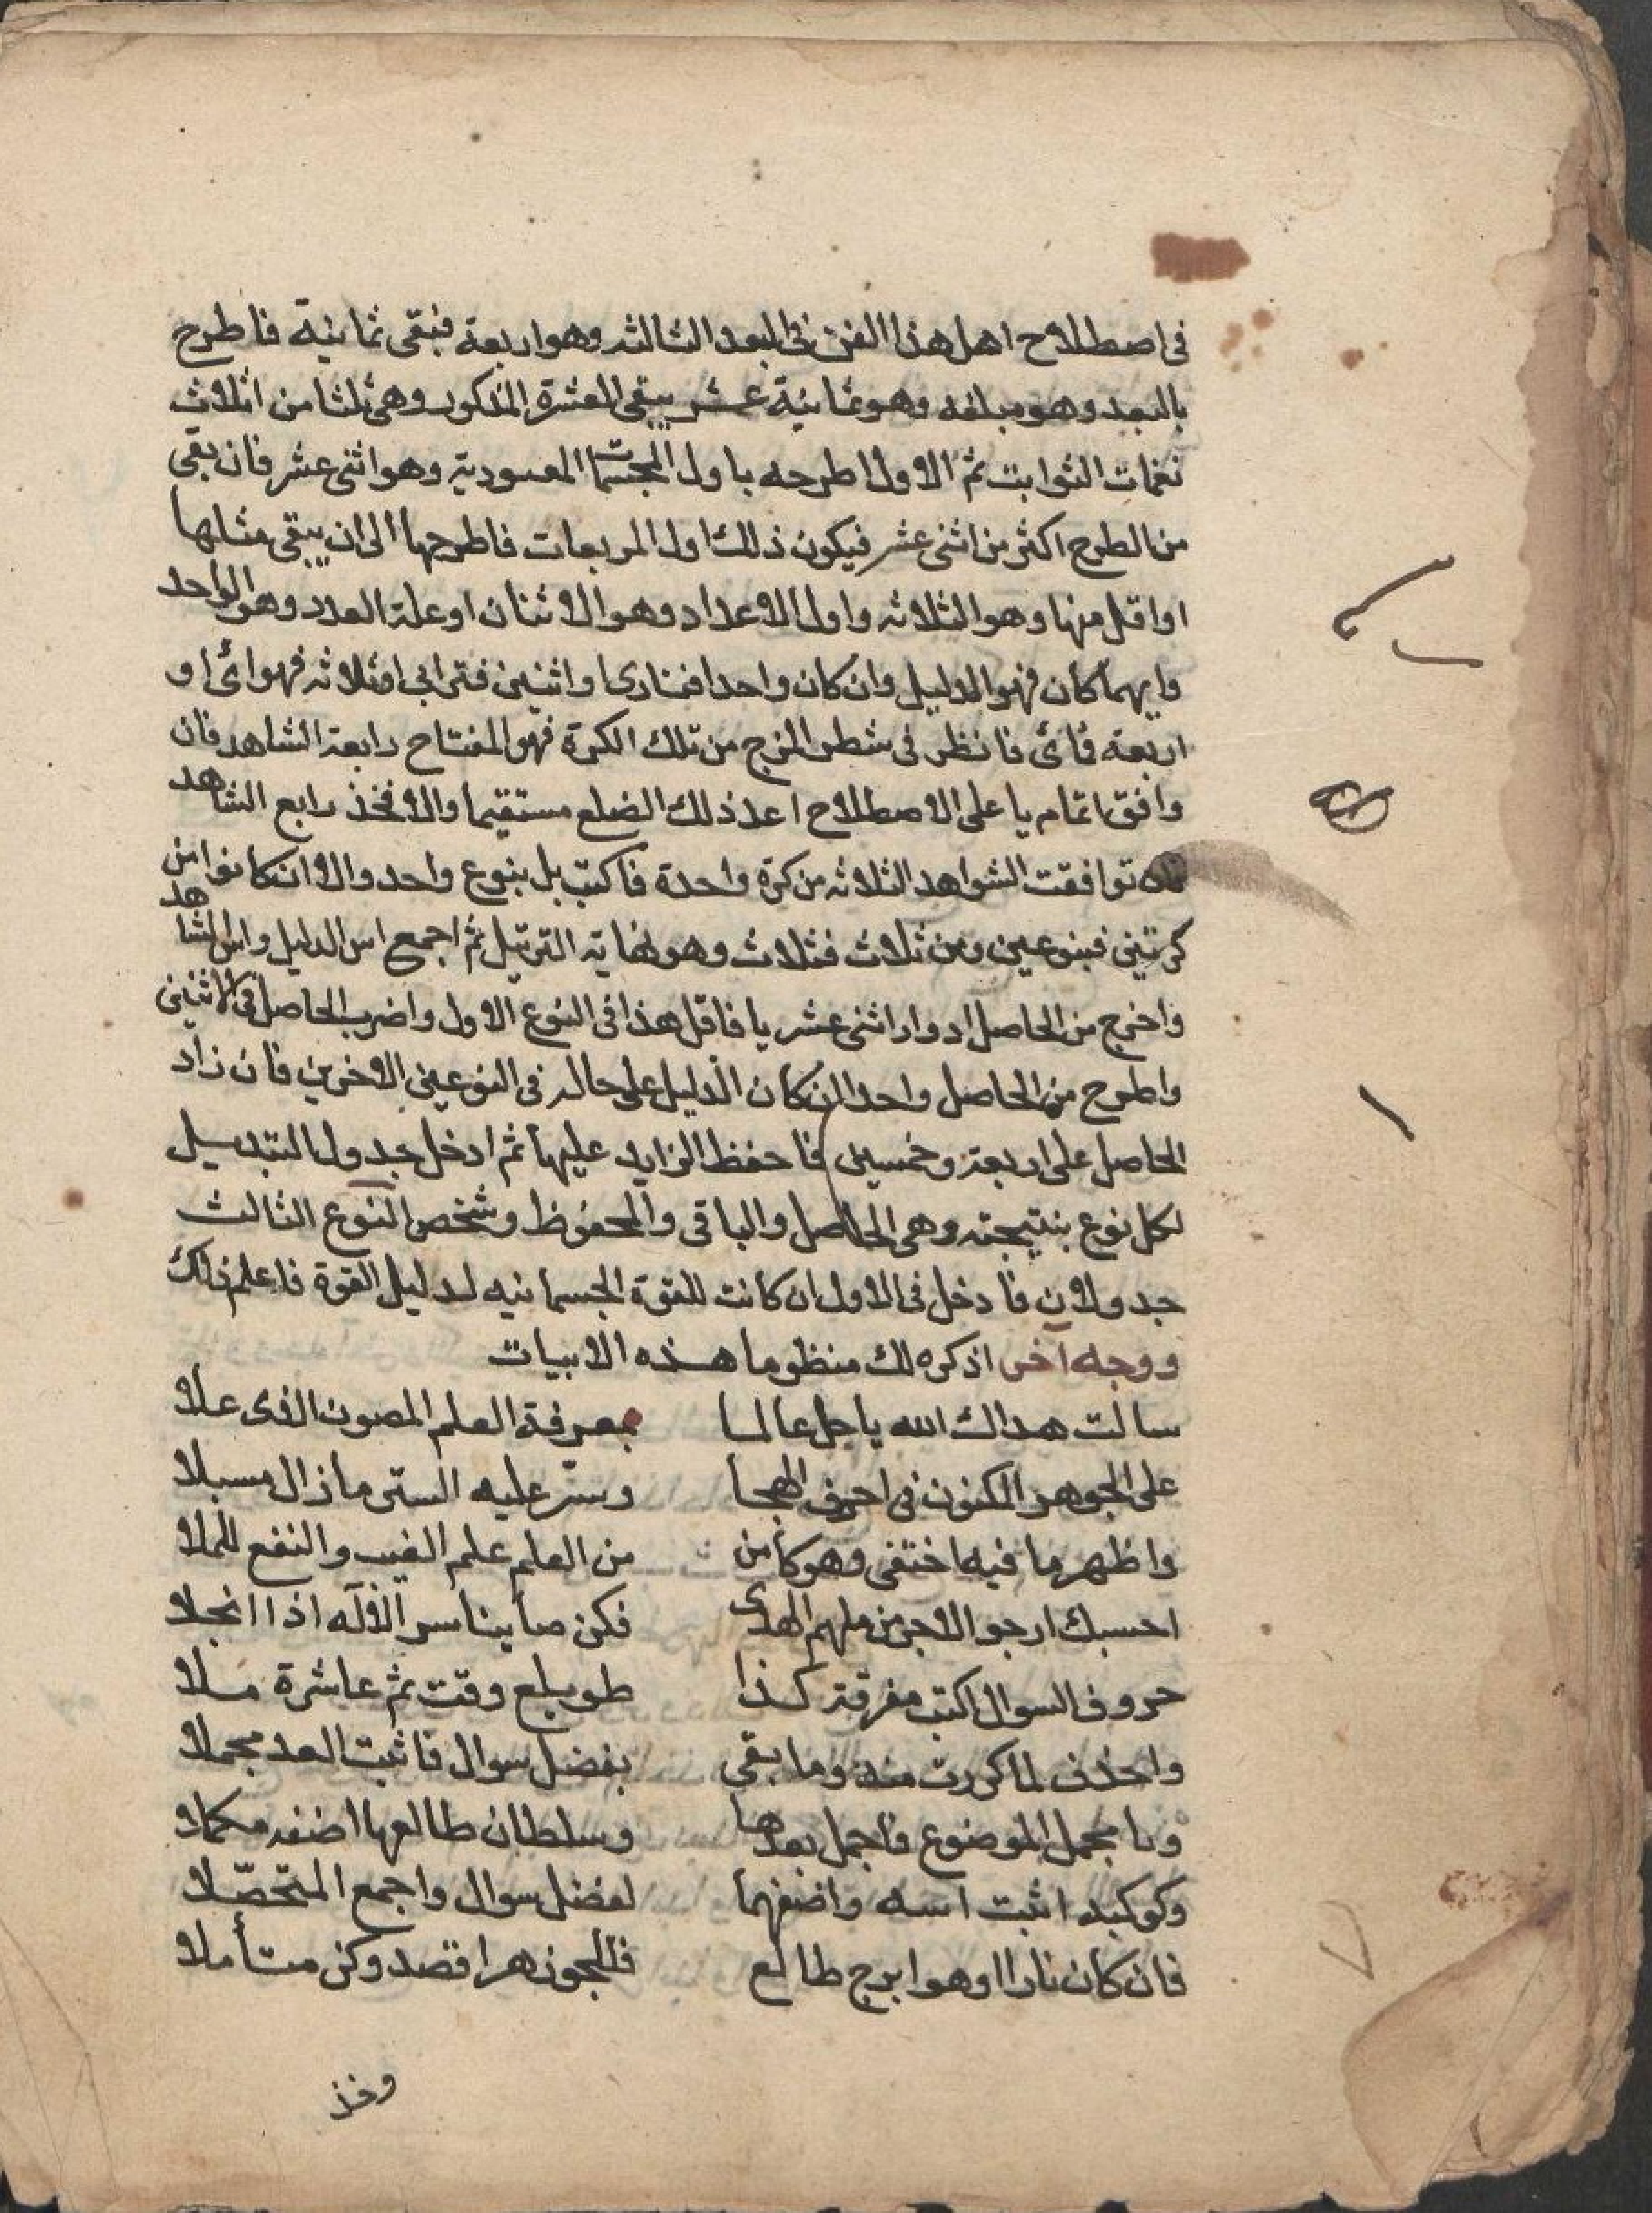 في اصطلاح اهل هذا الفن في البعد الثالثه وهو اربعة فيبقى ثمانية فاطرح
بالبعد وهو مبلغه وهو ثمانية عشر يبقى العشرة المذكور وهي ثلثا من اثلاث
نغمات الثوابت ثم الاول اطرحه باول المجسمات المعسودية وهو اثنى عشر فان بقى
من الطرح اكثر من اثنى عشر فيكون ذلك اول المربعات فاطرحها الى ان يبقى مثلها
او اقل منها وهو الثلاثه واول الاعداد وهو الاثنان او علة العدد وهو الواحد
وايهما كان فهو الدليل وان كان واحدا فنارى او اثنين فترابى او ثلاثه فهوائى او
اربعة فمائى فانظر فى شطر المزج من تلك الكرة فهو المفتاح رابعة الشاهد فان
وافق تمام يا على الاصطلاح اعد ذلك الضلع مستقيما والا فخذ رابع الشاهد
فان توافقت الشواهد الثلاثه من كرة واحدة فاكتب بل بنوع واحد والا ان كانوا من
كرتين فبنوعين ومن ثلاث فثلاث وهو نهاية الترتيل ثم اجمع اس الدليل واس الشاهد
واخرج من الحاصل ادوار اثنى عشر يا فاقل هذا فى النوع الاول واضرب الحاصل فى الاثنين
واطرح من الحاصل واحدا ان كان الدليل على حاله فى النوعين الاخرين فان زاد
الحاصل على اربعة وخمسين فاحفظ الزايد عليها ثم ادخل جدول التبديل
لكل نوع بنتيجته وهى الحاصل والباقى والمحفوظ وشخص النوع الثالث
جدولان فادخل فى الاول ان كانت للقوة الجسمانيه لدليل القوة فاعلم ذلك
ووجه آخر اذكره لك منظوما هذه الابيات
سالت هداك الله ياجل عالما بمعرفة العلم المصون الذى علا
على الجوهر المكنون فى احرف الهجا وستر عليه الستر مازال مسبلا
واظهر ما فيه اختفى وهو كامن من العلم علم الغيب والنفع للملا
احسبك ارجو الاجر من ملهم الهدى فكن صاينا سر الاله اذا انجلا
حروف السوال اكتب مفرقة كذا طويلع وقت ثم عاشرة مسلا
واحذف لما كررت منه وما بقى بفضل سوال فاثبت العد مجملا
ويا مجمل الموضوع فاجمل بعدها وسلطان طالعها اضفه مكملا
وكوكبه اثبت اسه واضفهما لفضل سوال واجمع المتحصّلا
فان كان نارا او هوا برج طالع فللجوزهر اقصد وكن متأملا
وخذ